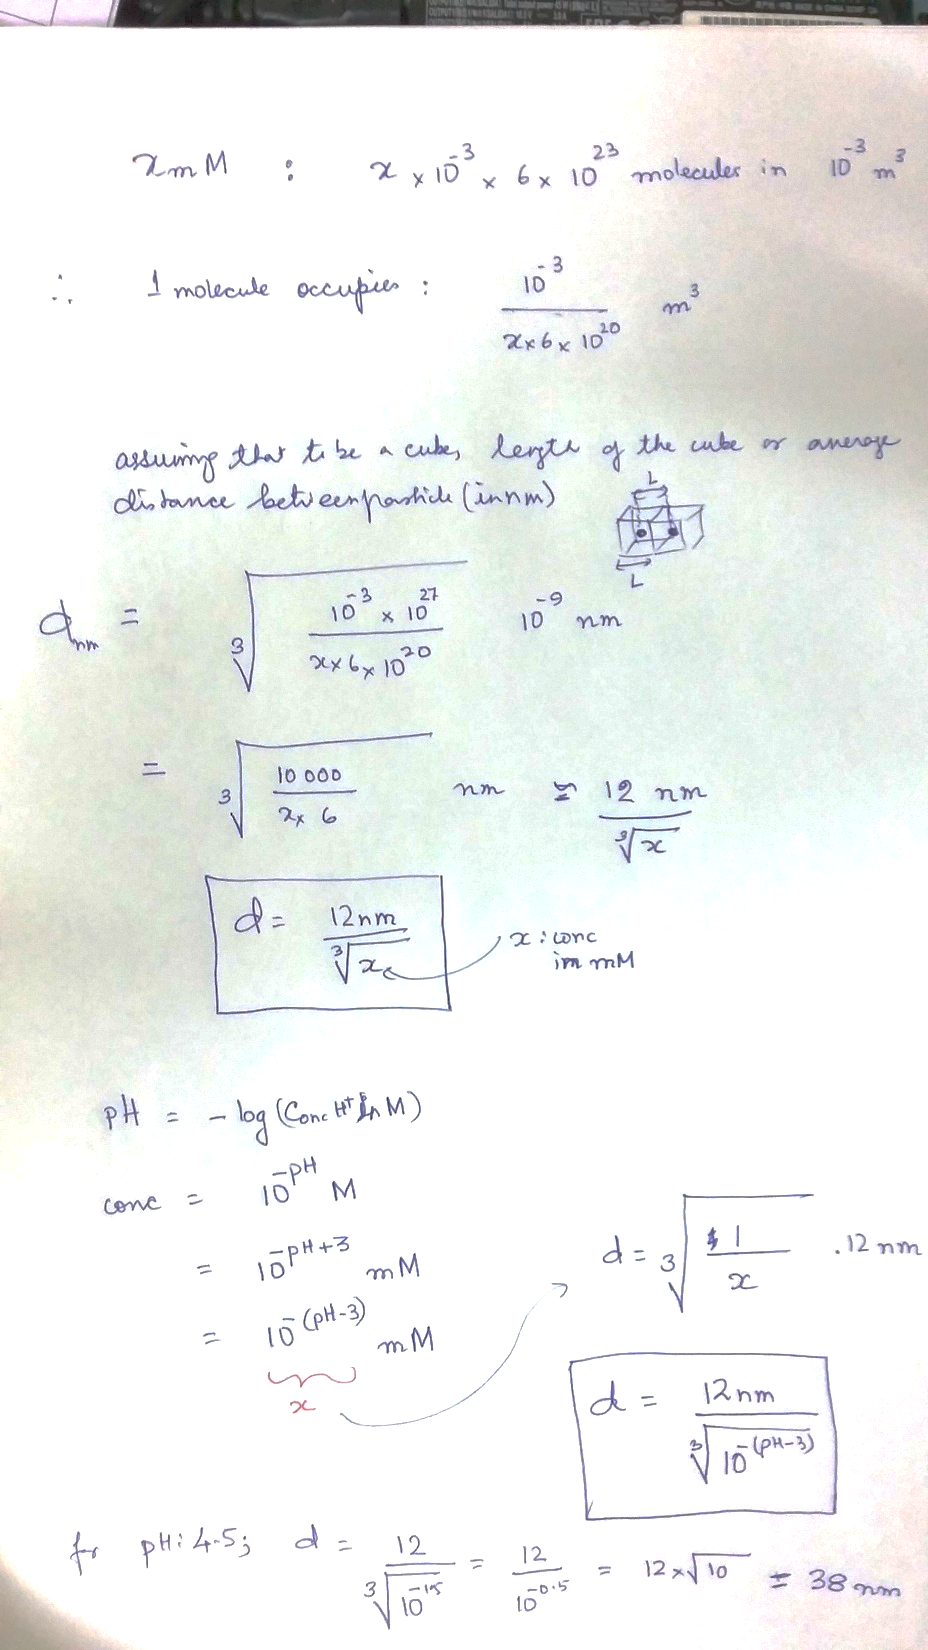 x mM : x × 10⁻³ × 6 × 10²³ molecules in 10⁻³ m³
∴ 1 molecule occupies : 10⁻³ / (x × 6 × 10²⁰) m³
assuming that to be a cube, length of the cube or average
distance between particle (in nm)
L
L
d_nm = ∛((10⁻³ × 10²⁷) / (x × 6 × 10²⁰)) 10⁻⁹ nm
= ∛(10 000 / (x × 6)) nm ≃ 12 nm / ∛x
d = 12nm / ∛x
x : conc
in mM
pH = - log (Conc H⁺ in M)
conc = 10^(-pH) M
= 10^(-pH+3) mM
= 10^(-(pH-3)) mM
x
d = ∛(1 / x) . 12 nm
d = 12nm / ∛(10^(-(pH-3)))
for pH : 4.5; d = 12 / ∛(10^(-1.5)) = 12 / 10^(-0.5) = 12 × √10 = 38 nm